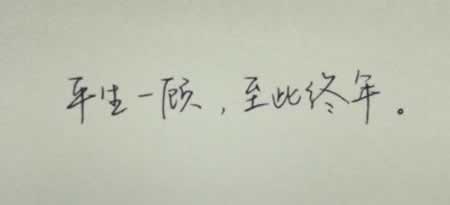 平生一顾，至此终年。